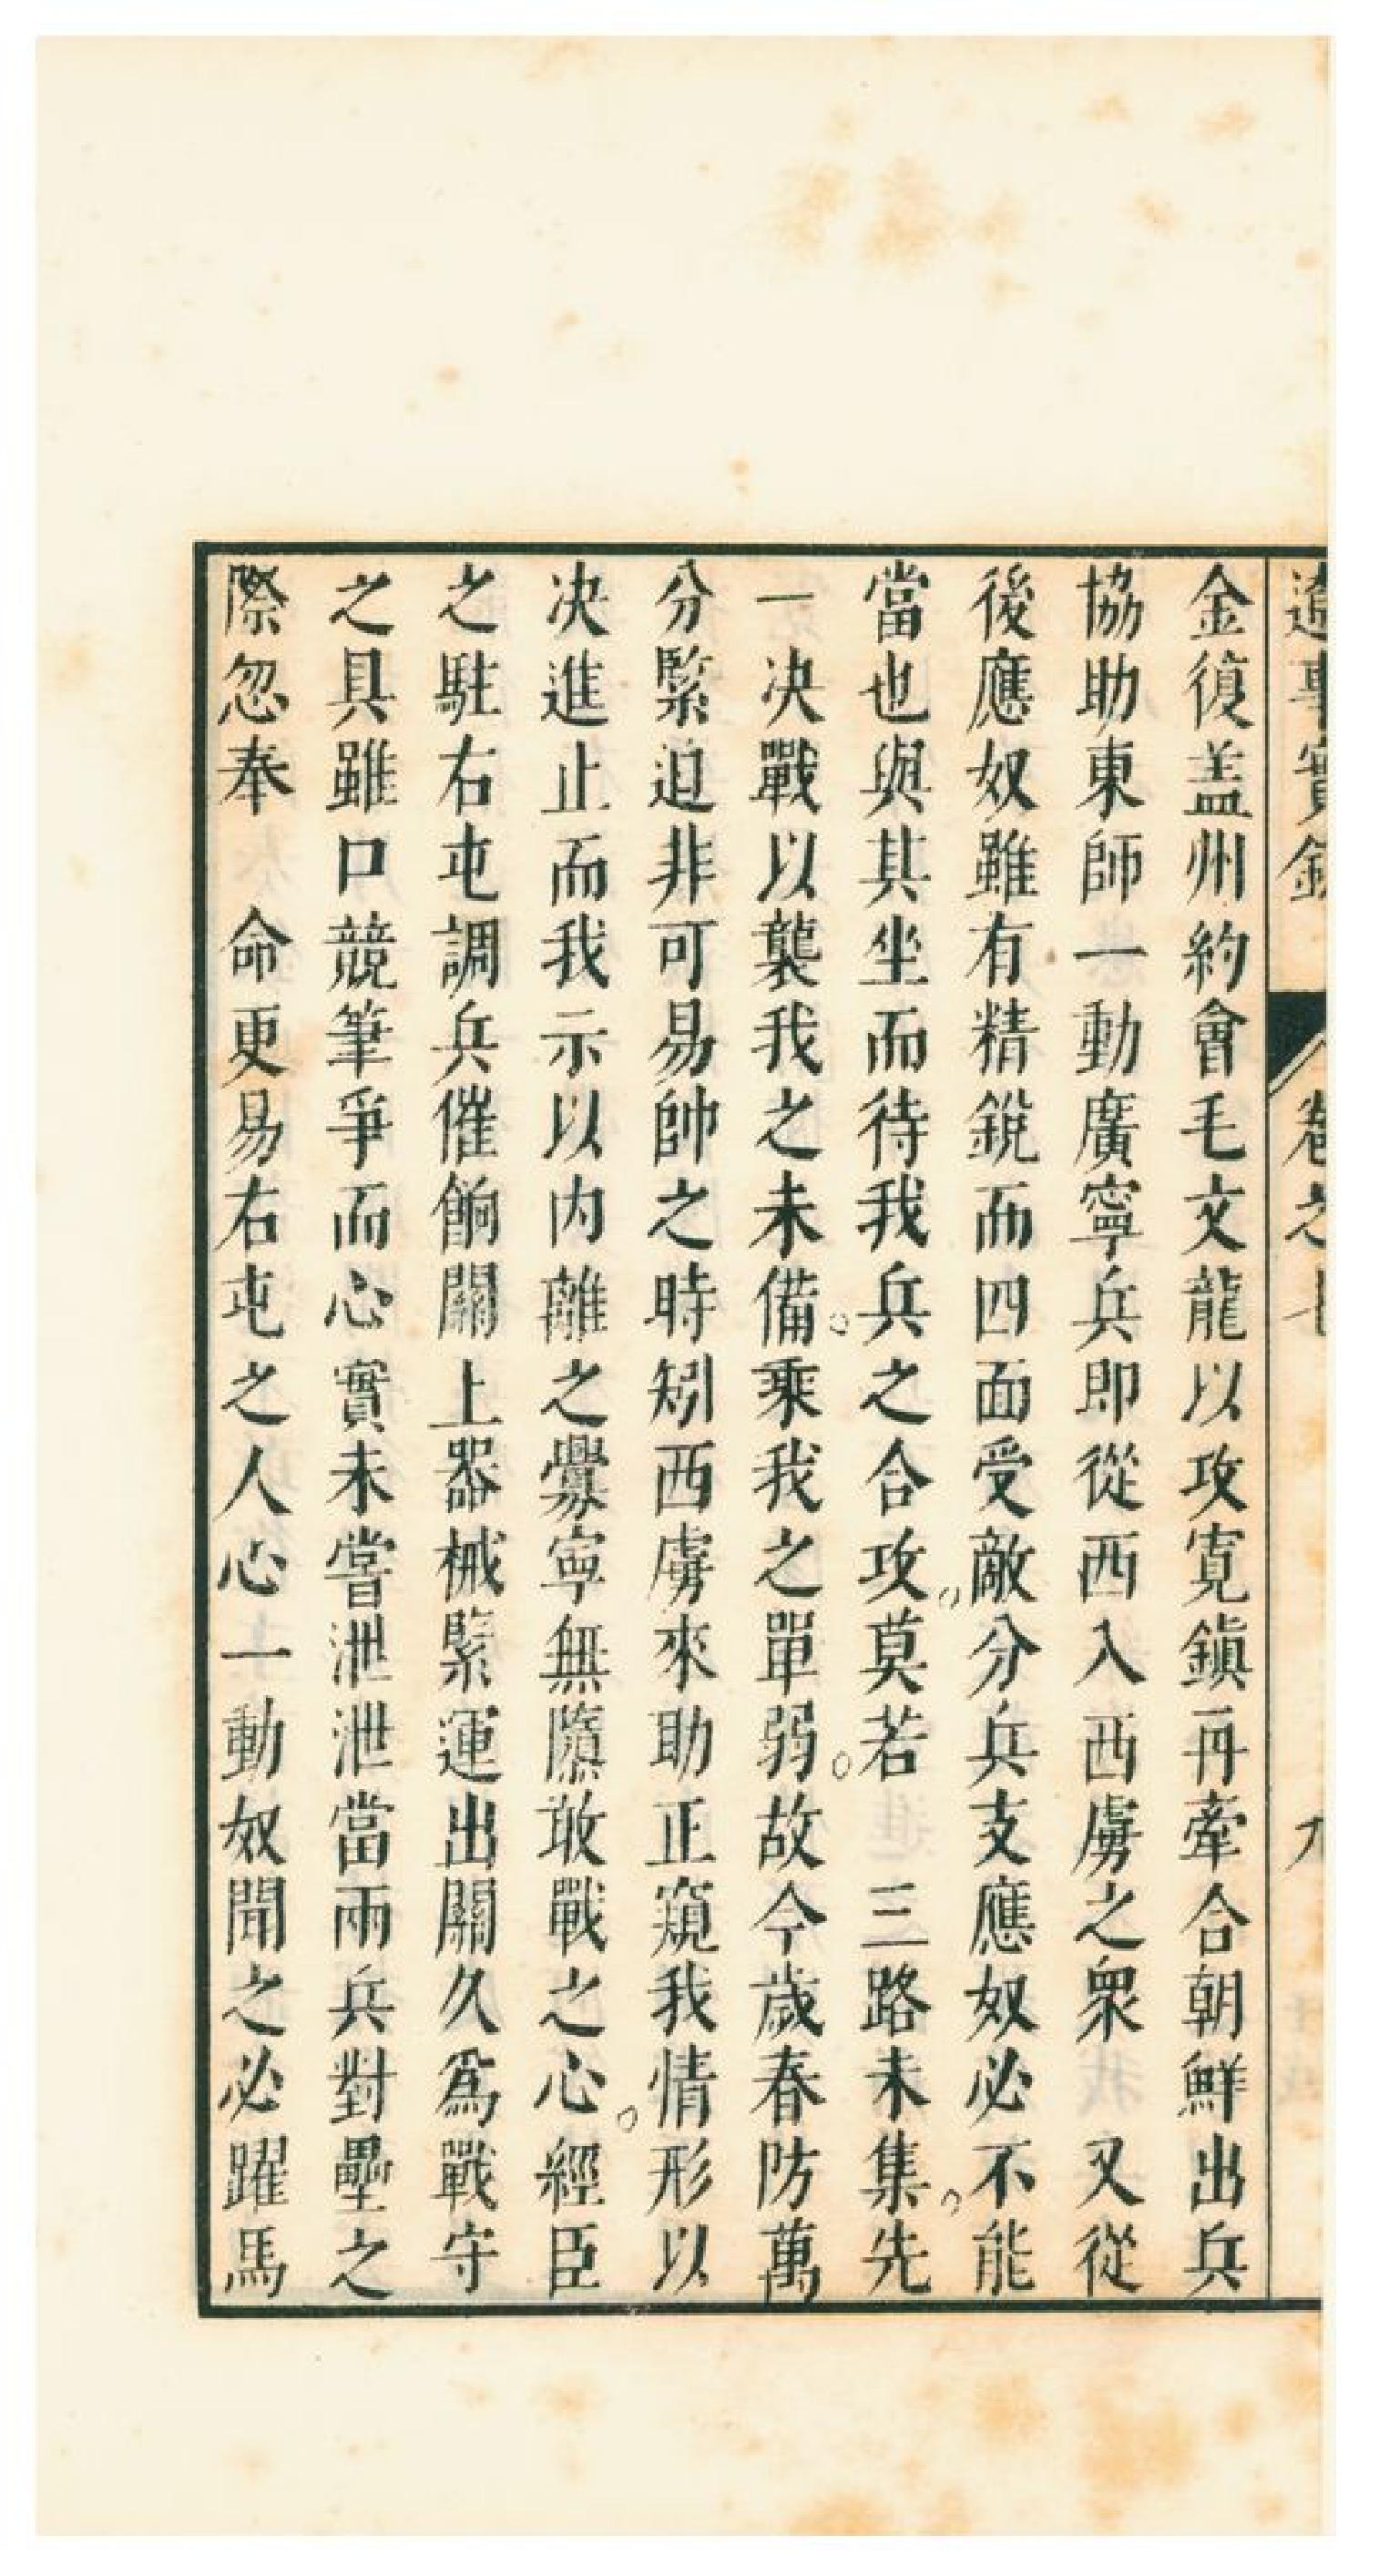 遼事實錄 卷之七 九
金復盖州約會毛文龍以攻寬鎭再牽合朝鮮出兵
協助東師一動廣寧兵即從西入西虜之衆 又從
後應奴雖有精銳而四面受敵分兵支應奴必不能
當也與其坐而待我兵之合攻。莫若 三路未集。先
一决戰以襲我之未備。乘我之單弱。故今歲春防萬
分緊迫非可易帥之時矧西虜來助正窺我情形以
决進止而我示以内離之釁寧無隳敢戰之心。經臣
之駐右屯調兵催餉關上器械緊運出關久爲戰守
之具雖口競筆爭而心實未嘗泄泄當兩兵對壘之
際忽奉 命更易右屯之人心一動奴聞之必躍馬